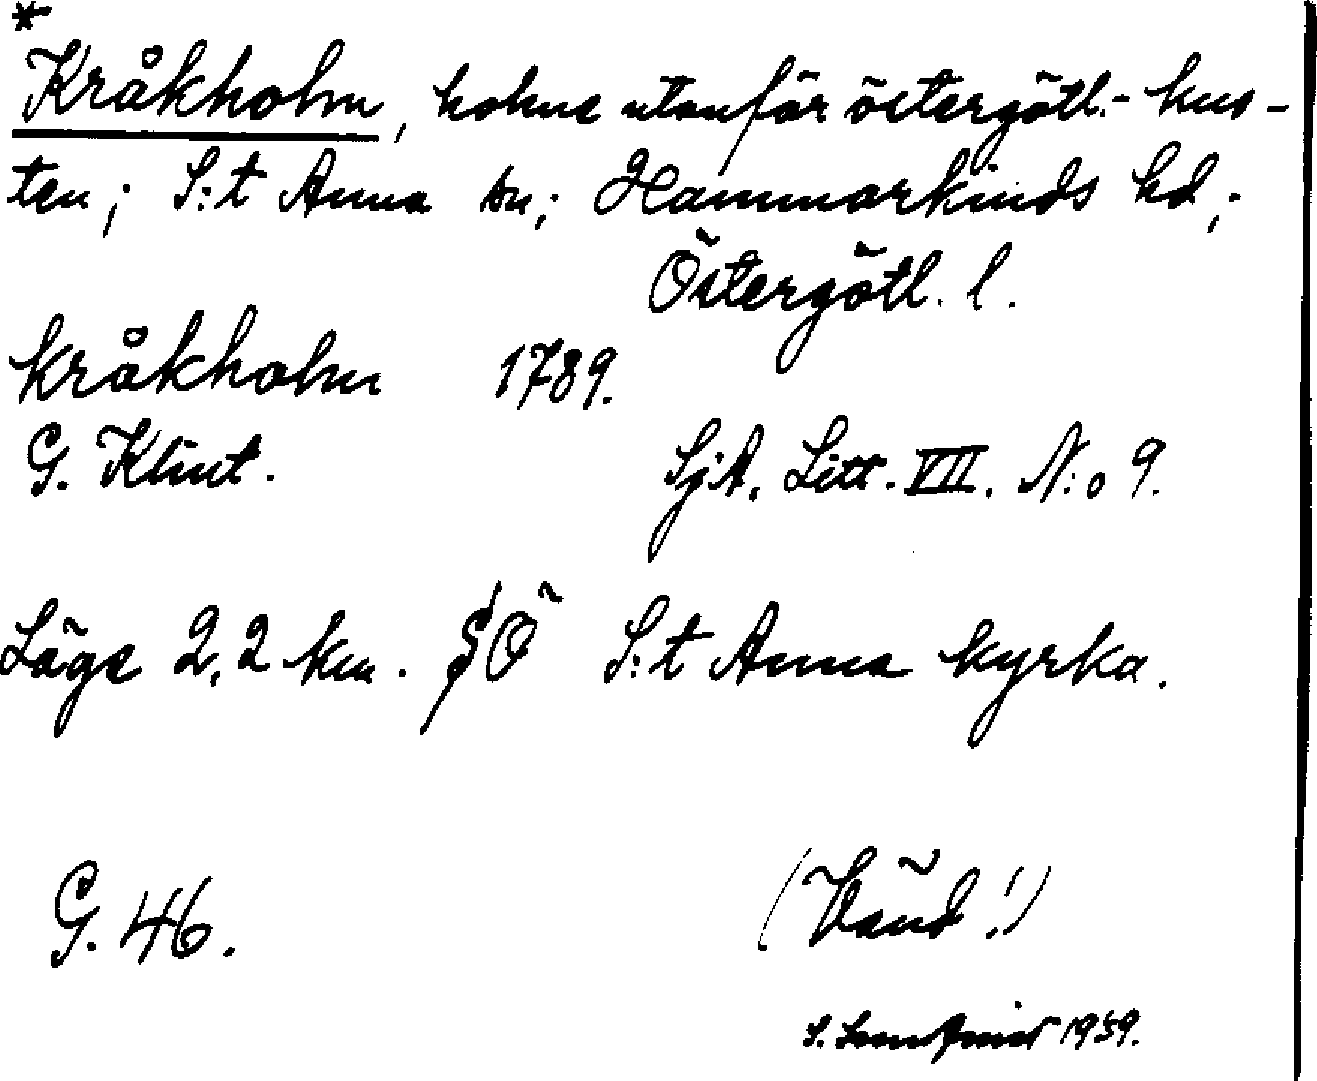 *
Kråkholm, holme utanför östergötl.- kus-
ten; S:t Anna sn; Hammarkinds hd,;
Östergötl. l.
Kråkholm 1789.
G. Klint. SjA. Litt. VII. N:o 9.
Läge 2,2 km. SÖ S:t Anna kyrka.
G. 46. (Vänd!)
S. 1939.